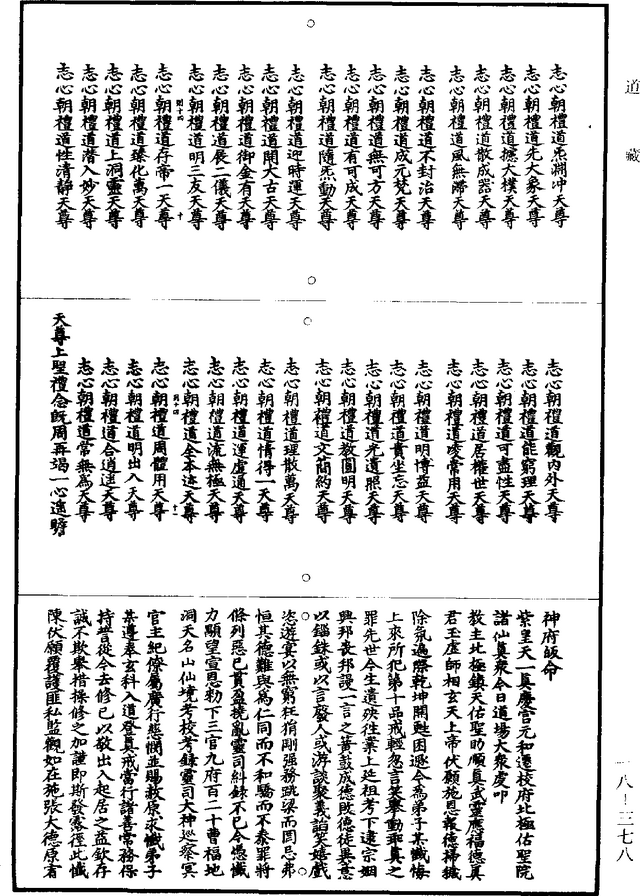 道藏
志心朝禮道炁淵沖天尊
志心朝禮道先大象天尊
志心朝禮道撼大樸天尊
志心朝禮道散成器天尊
志心朝禮道風無滯天尊
志心朝禮道不封治天尊
志心朝禮道成元梵天尊
志心朝禮道無可方天尊
志心朝禮道有可成天尊
志心朝禮道隨炁動天尊
志心朝禮道迎時運天尊
志心朝禮道開大古天尊
志心朝禮道御金有天尊
志心朝禮道展二儀天尊
志心朝禮道明三友天尊
志心朝禮道存帝一天尊
志心朝禮道臻化萬天尊
志心朝禮道上洞靈天尊
志心朝禮道潛入妙天尊
志心朝禮道性清靜天尊
志心朝禮道觀內外天尊
志心朝禮道能窮理天尊
志心朝禮道可盡性天尊
志心朝禮道居權世天尊
志心朝禮道唆常用天尊
志心朝禮道明博益天尊
志心朝禮道貴坐忘天尊
志心朝禮道光遺照天尊
志心朝禮道教圓明天尊
志心朝禮道文簡約天尊
志心朝禮道理散萬天尊
志心朝禮道情得一天尊
志心朝禮道運虛通天尊
志心朝禮道流無極天尊
志心朝禮道全本迹天尊
志心朝禮道周體用天尊
志心朝禮道明出入天尊
志心朝禮道合逍遥天尊
志心朝禮道常無為天尊
天尊上聖禮念既周再竭一心遙瞻
神府皈命
紫皇天一真慶宮元和遷校府北極佑聖院
諸仙真衆今日道場大衆虔叩
教主北極鎮天佑聖助順真武靈應福德真
君玉虛師相玄天上帝伏願施恩報德掃穢
除氛過際乾坤開甦困逐今為弟子某懺悔
上來所犯第十品戒輕忽言笑舉動乖真之
罪先世今生遺殃徃業上廷祖考下逮宗姻
興邦喪邦謾一言之簧鼓成德敗德徒異意
以錙銖或以言發人或游談聚義諂笑嬉戲
恣遊宴以無窮狂猾剛强務跳梁而罔忌弗
恒其德難與為仁同而不和驕而不泰罪將
條列惡已貫盈撓亂靈司糾錄不已今憑懺
力願望宣恩勑下三官九府百二十曹福地
洞天名山仙境考校考錄靈司大神巡察冥
官主紀僚屬廣行慈憫並賜赦原求懺弟子
某遵奉玄科入道登真戒當行諸善常務保
持誓從今去修已以敬出入起居之益欽存
誠不欺舉措操修之加謹即斯發露徑此懺
陳伏願覆護匪私監觀如在施張大德原宥
一八—三七八